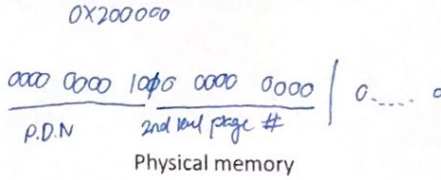 0X200000
0000 0000 1000 0000 0000 | 0..... 0
P.D.N 2nd level page #
Physical memory